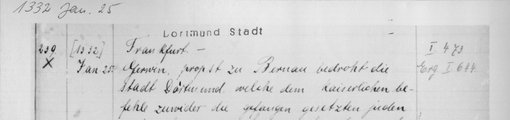 1332 Jan. 25
Dortmund Stadt
239 [1332] Frankfurt. — I 473
X Jan 25. Gerwin, propst zu Bernau bedroht die Erg. I. 644
Stadt Dortmund, welche dem kaiserlichen be-
fehle zuwider die gefangen gesetzten juden